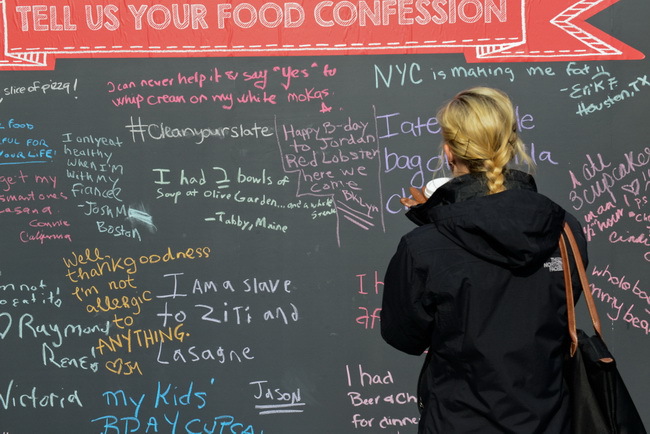 TELL US YOUR FOOD CONFESSION
slice of pizza!
I can never help it & say "yes" to
whip cream on my white mokas.
NYC is making me fat
-Erik F
Houston, TX
#Cleanyourslate
Happy B-day
to Jordan
Red Lobster
here we
come
BKLyn
I ate
bag
FOOD
YOUR LIFE!
I only eat
healthy
when I'm
with my
fiancé
-Josh M
Boston
I had 2 bowls of
Soup at Olive Garden...and a whole
-Tabby, Maine
I ate
3 cupcakes
man!
get my
Lasagna
Connie
California
Well-
thankgoodness
I'm not
allergic
to
ANYTHING.
JM
I Am a slave
to Ziti and
Lasagne
I h
THE
NORTH
FACE
whole bo
not
to eat it
Raymond
Rene!
Victoria
my Kids'
BDAY CUPCA
Jason
I had
Beer & Ch
for dinne